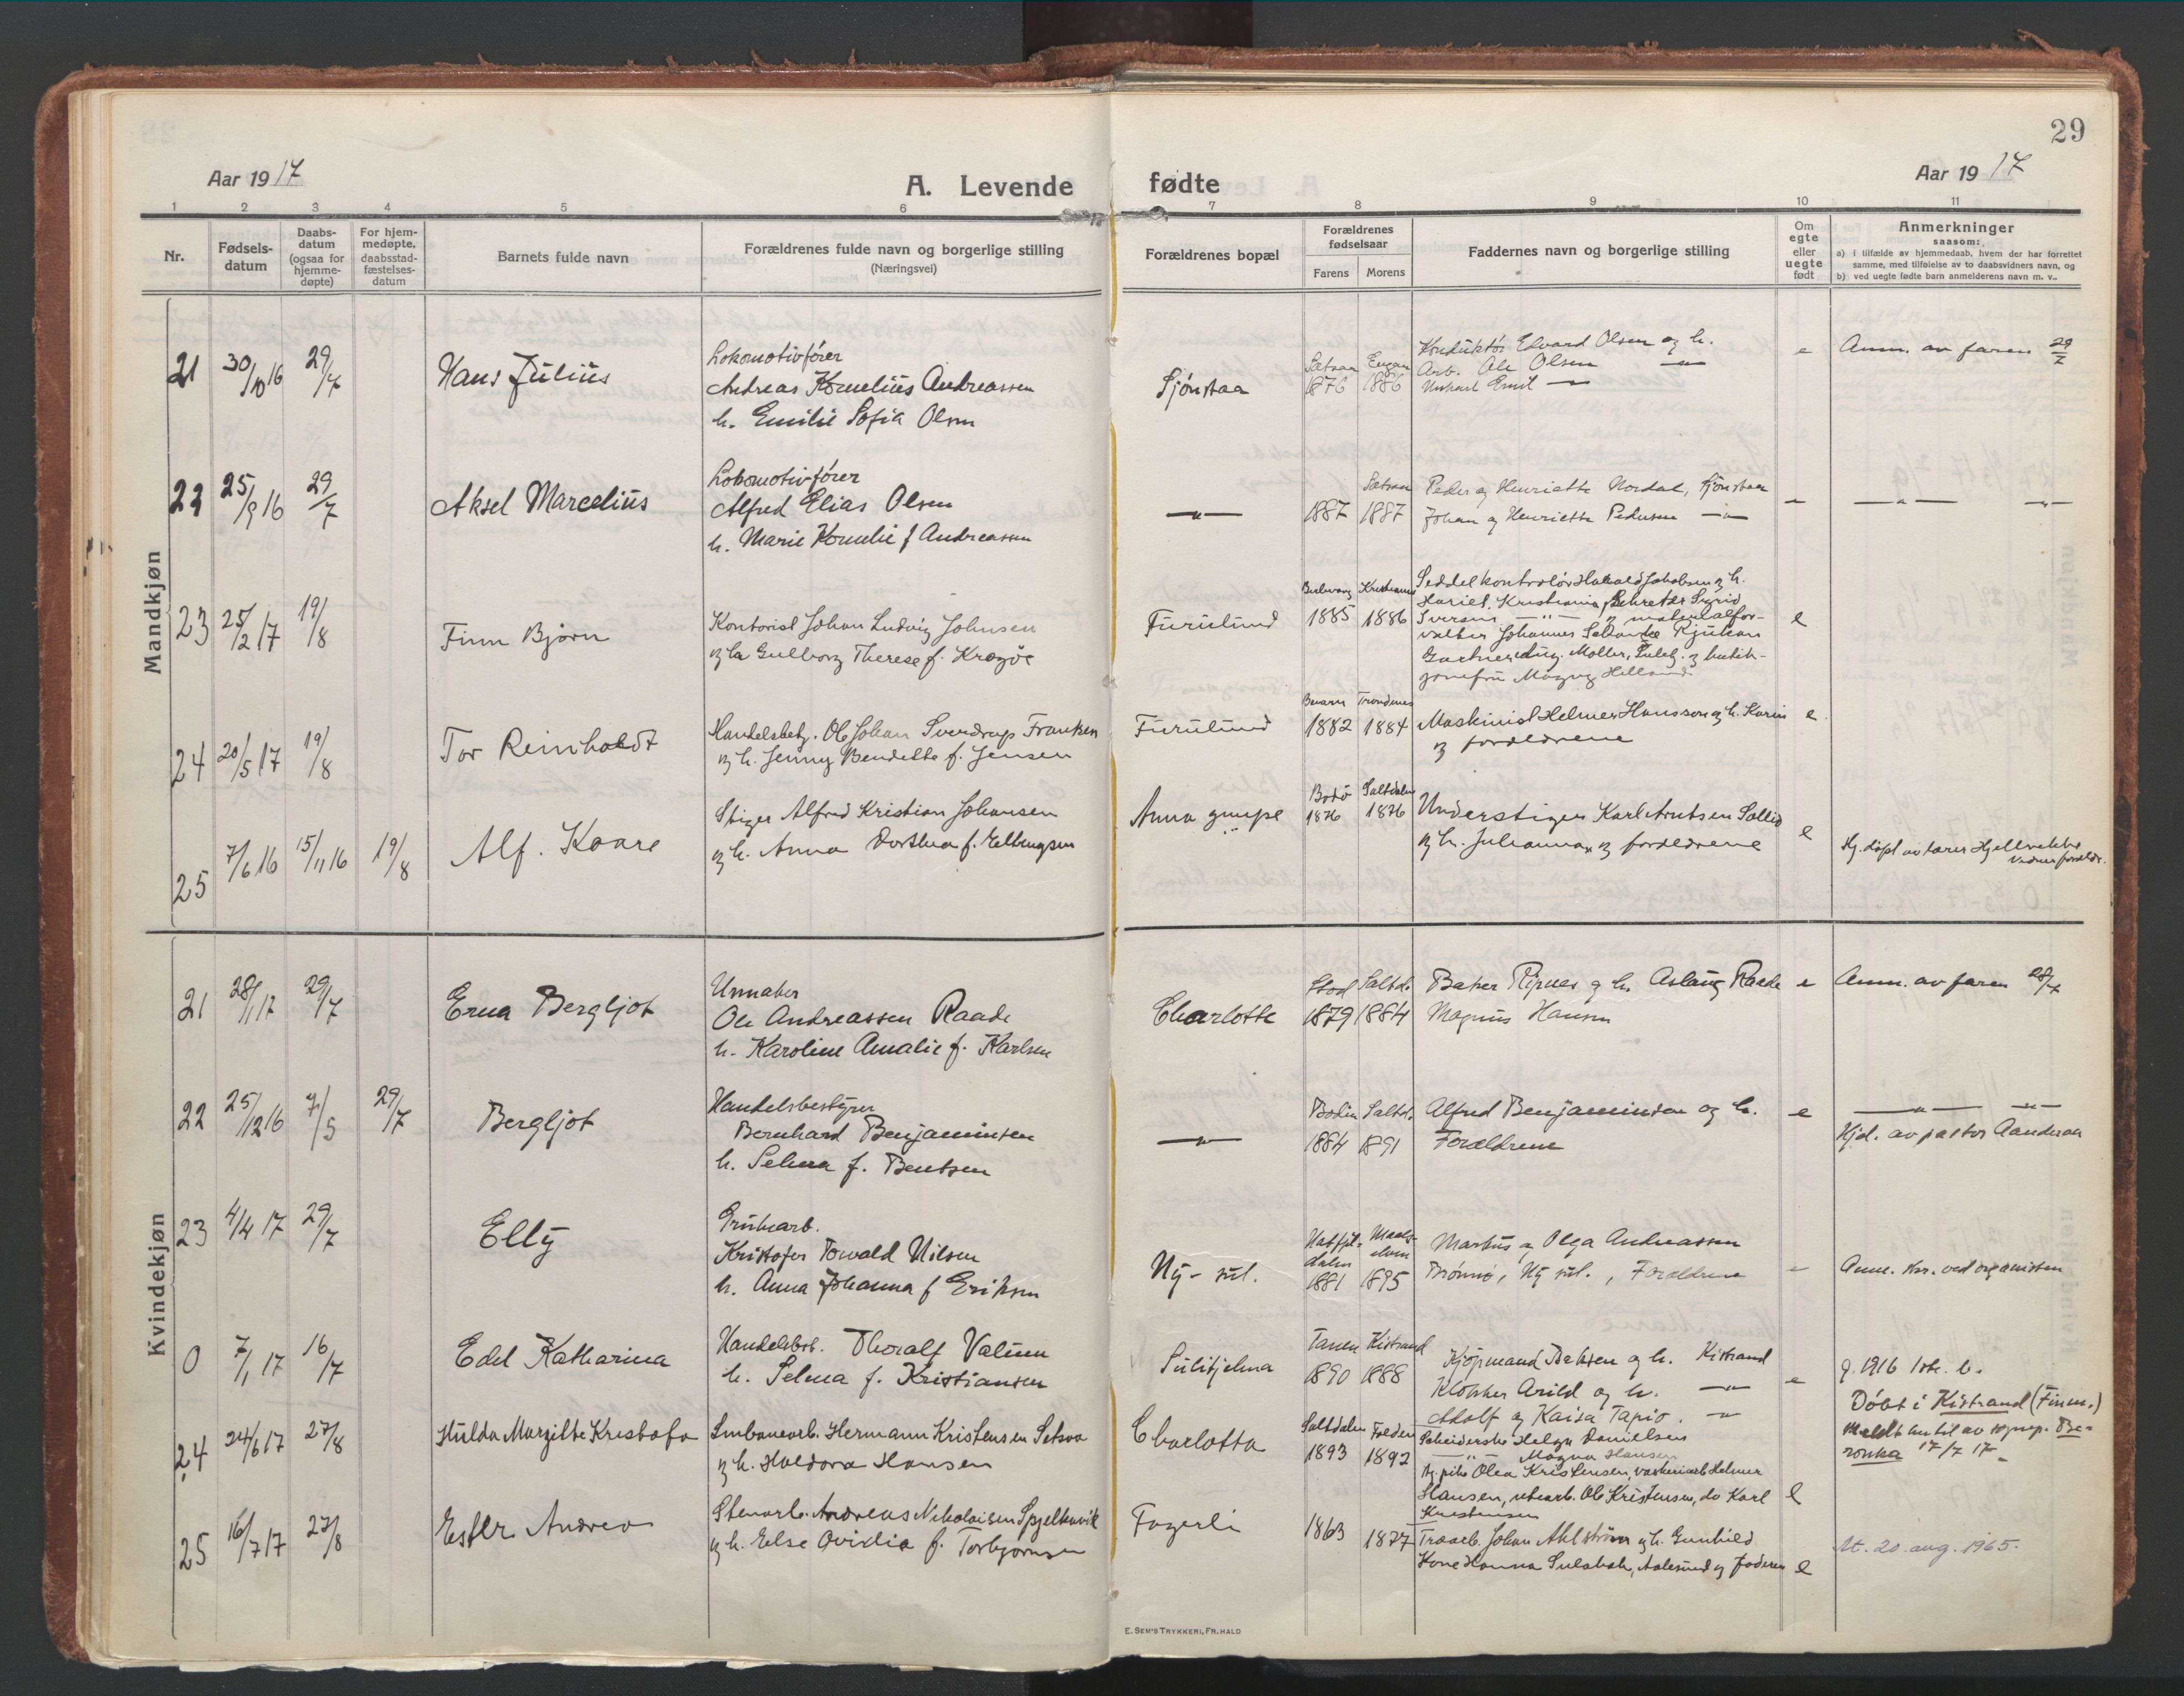 29
Aar 1917
A. Levende fødte
Aar 1917
1 2 3 4 5 6 7 8 9 10 11
Nr.
Fødsels-
datum
Daabs-
datum
(ogsaa for
hjemme-
døpte)
For hjem-
medøpte,
daabsstad-
fæstelses-
datum
Barnets fulde navn
Forældrenes fulde navn og borgerlige stilling
(Næringsvei)
Forældrenes bopæl
Forældrenes
fødselsaar
Farens Morens
Faddernes navn og borgerlige stilling
Om
egte
eller
uegte
født
Anmerkninger
saasom:
a) i tilfælde av hjemmedaab, hvem der har forrettet
samme, med tilføielse av to daabsvidners navn, og
b) ved uegte fødte barn anmelderens navn m. v..
Mandkjøn
21 30/10 16 29/7 Hans Julius
Lokomotivfører
Andreas Kornelius Andreassen
h. Emilie Sofia Olsen
Sjønstaa
1876 1886
Konduktør Edvard Olsen og h.
Arb. Ole Olsen —"—
Ungkarl Emil —"—
e
Anm. av faren 29/7
22 25/9 16 29/7 Aksel Marcelius
Lokomotivfører
Alfred Elias Olsen
h. Marie Kornelie f Andreassen
—"—
1887 1887
Peder og Henriette Nordal, Sjønstaa
Johan og Henriette Pedersen —"—
—"— —"—
23 25/2 17 19/8 Finn Bjørn
Kontorist Johan Ludvig Johnsen
og h. Gulborg Therese f. Kragøe
Furulund
Kristiania
1885 1886
Seddelkontrolør Harald Jakobsen og h.
Harriet, Kristiania, Sigrid
Iversen —"— og materialfor-
valter Johannes Rjukan
Møller, Sulitj. og butik-
jomfru Magny Helland
e
24 20/5 17 19/8 Tor Reinholdt
Handelsbetj. Ole Johan Sverdrup Frantzen
og h. Jenny Bendikte f. Jensen
Furulund
Beiarn Trondenes
1882 1884
Maskinist Helmer Hansson og h. Karin
og forældrene
e
25 7/6 16 15/11 16 19/8 Alf. Kaare
Stiger Alfred Kristian Johansen
og h. Anna Dorthea f. Ellingsen
Anna grupe
Bodø Saltdalen
1876 1876
Understiger Karl Arntsen Sollid
og h. Julianna og forældrene
e
Hj. døpt av lærer Hjellvekke
Vidner foreldr.
Kvindekjøn
21 28/1 17 29/7 Erna Bergljot
Ole Andreassen Raade
h. Karoline Amalie f. Karlsen
Charlotte
Stod Saltd.
1879 1884
Baker Ripnes og h. Aslaug Raade
Magnus Hansen
e
Anm. av faren 28/7
22 25/12 16 7/5 29/7 Bergljot
Handelsbestyrer
Bernhard Benjaminsen
h. Selma f. Bentsen
—"—
Bodin Saltd.
1884 1891
Alfred Benjaminsen og h.
Forældrene
e
—"— —"—
Hjd. av pastor Aanderaa
23 4/4 17 29/7 Elly
Grubearb.
Kristofer Torvald Nilsen
h. Anna Johanna f Eriksen
Ny-sul.
Hatfjel- Maals-
dalen elven
1881 1895
Martus og Olga Andreassen
Brønnø, Ny sul., Forældrene
Anm. skr. ved organisten
0 7/1 17 16/7 Edel Katharina
Handelsbest. Thoralf Valnum
h. Selma f. Kristiansen
Sulitjelma
Tanen Kistrand
1890 1888
Kjøpmand og h. Kistrand
Klokker Arild og h. —"—
Adolf og Kaisa Tapio. —"—
g. 1916
Døbt i Kistrand (Finm.)
Meldt hertil av sogneprp.
17/7 17
24 24/6 17 27/8 Hulda Margitte Kristofa
Linbanearb. Hermann Kristensen Setsaa
og h. Haldora Hansen
Charlotta
Saltdalen Folden
1893 1892
Helga Danielsen
—"— Magna Hansen
Tj. pike Olea Kristensen, vaskeriarb Helmer
Hansen, utearb. Ole Kristensen, do Karl
Kristensen
e
25 16/7 17 27/8 Ester Andrea
Stenarb. Andreas Nikolaisen Spjelkavik
og h. Else Ovidia f. Torbjørnsen
Fagerli
1863 1877
Traarb. Johan Ahlström og h. Gunhild
Kone Hanna Sulabak, Aalesund og faderen
e
At. 20 aug. 1965.
E. SEM'S TRYKKERI, FR. HALD